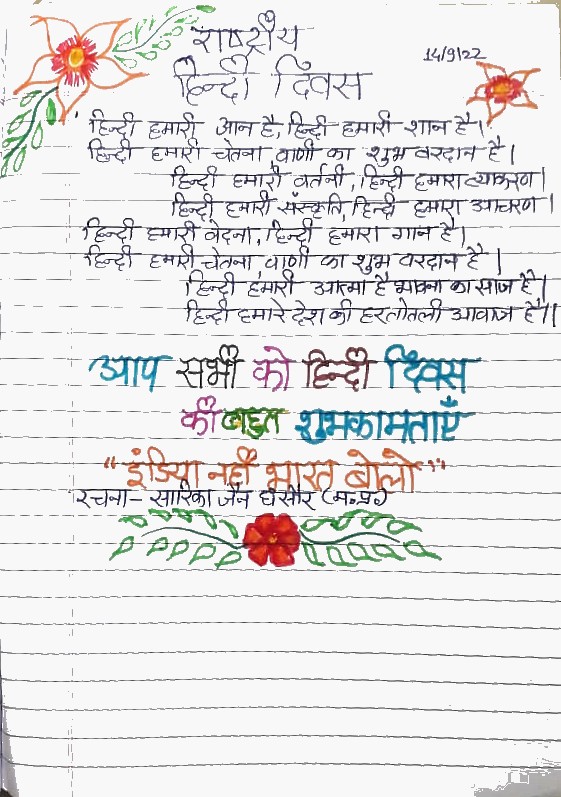 राष्ट्रीय
14/9/22
हिन्दी दिवस
हिन्दी हमारी आन है, हिन्दी हमारी शान है।
हिन्दी हमारी चेतना, वाणी का शुभ वरदान है।
हिन्दी हमारी वर्तनी, हिन्दी हमारा व्याकरण।
हिन्दी हमारी संस्कृति, हिन्दी हमारा आचरण।
हिन्दी हमारी वेदना, हिन्दी हमारा गान है।
हिन्दी हमारी चेतना, वाणी का शुभ वरदान है।
हिन्दी हमारी आत्मा है भावना का साज है।
हिन्दी हमारे देश की हर तोतली आवाज है।।
आप सभी को हिन्दी दिवस
की बहुत शुभकामताएँ
"इंडिया नहीं भारत बोलो"
रचना- सारिका जैन घंसौर (म.प्र)